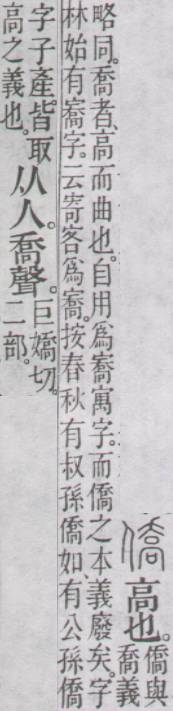 僑高也。僑與
喬義
略同。喬者、高而曲也。自用爲㝯寓字。而僑之本義廢矣。字
林始有㝯字。云寄客爲㝯。按春秋有叔孫僑如、有公孫僑
字子產。皆取
高之義也。
从人。喬聲。巨嬌切。
二部。